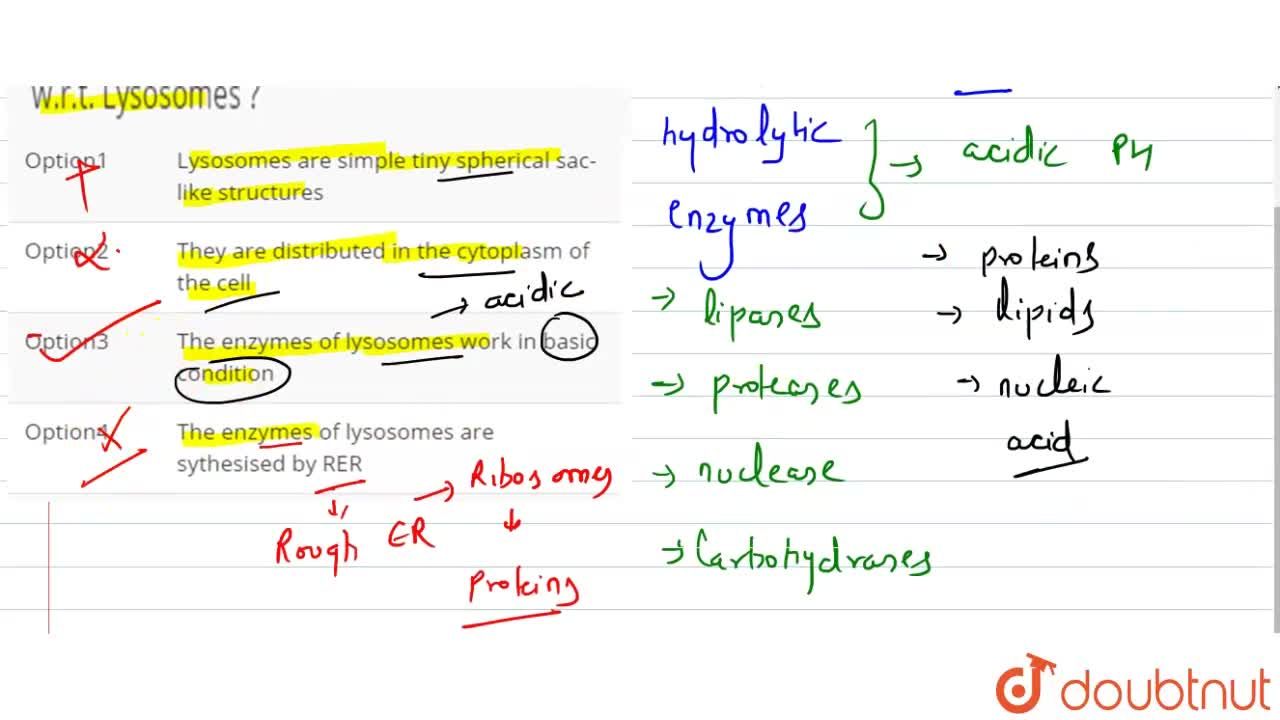 w.r.t. Lysosomes ?
Option1 Lysosomes are simple tiny spherical sac-
like structures
Option2 They are distributed in the cytoplasm of
the cell
→ acidic
Option3 The enzymes of lysosomes work in basic
condition
Option4 The enzymes of lysosomes are
sythesised by RER
Rough ER → Ribosomes
↓
Proteins
hydrolytic
enzymes
} → acidic PH
→ lipases
→ proteases
→ nuclease
→ Carbohydrases
→ proteins
→ lipids
→ nucleic
acid
doubtnut